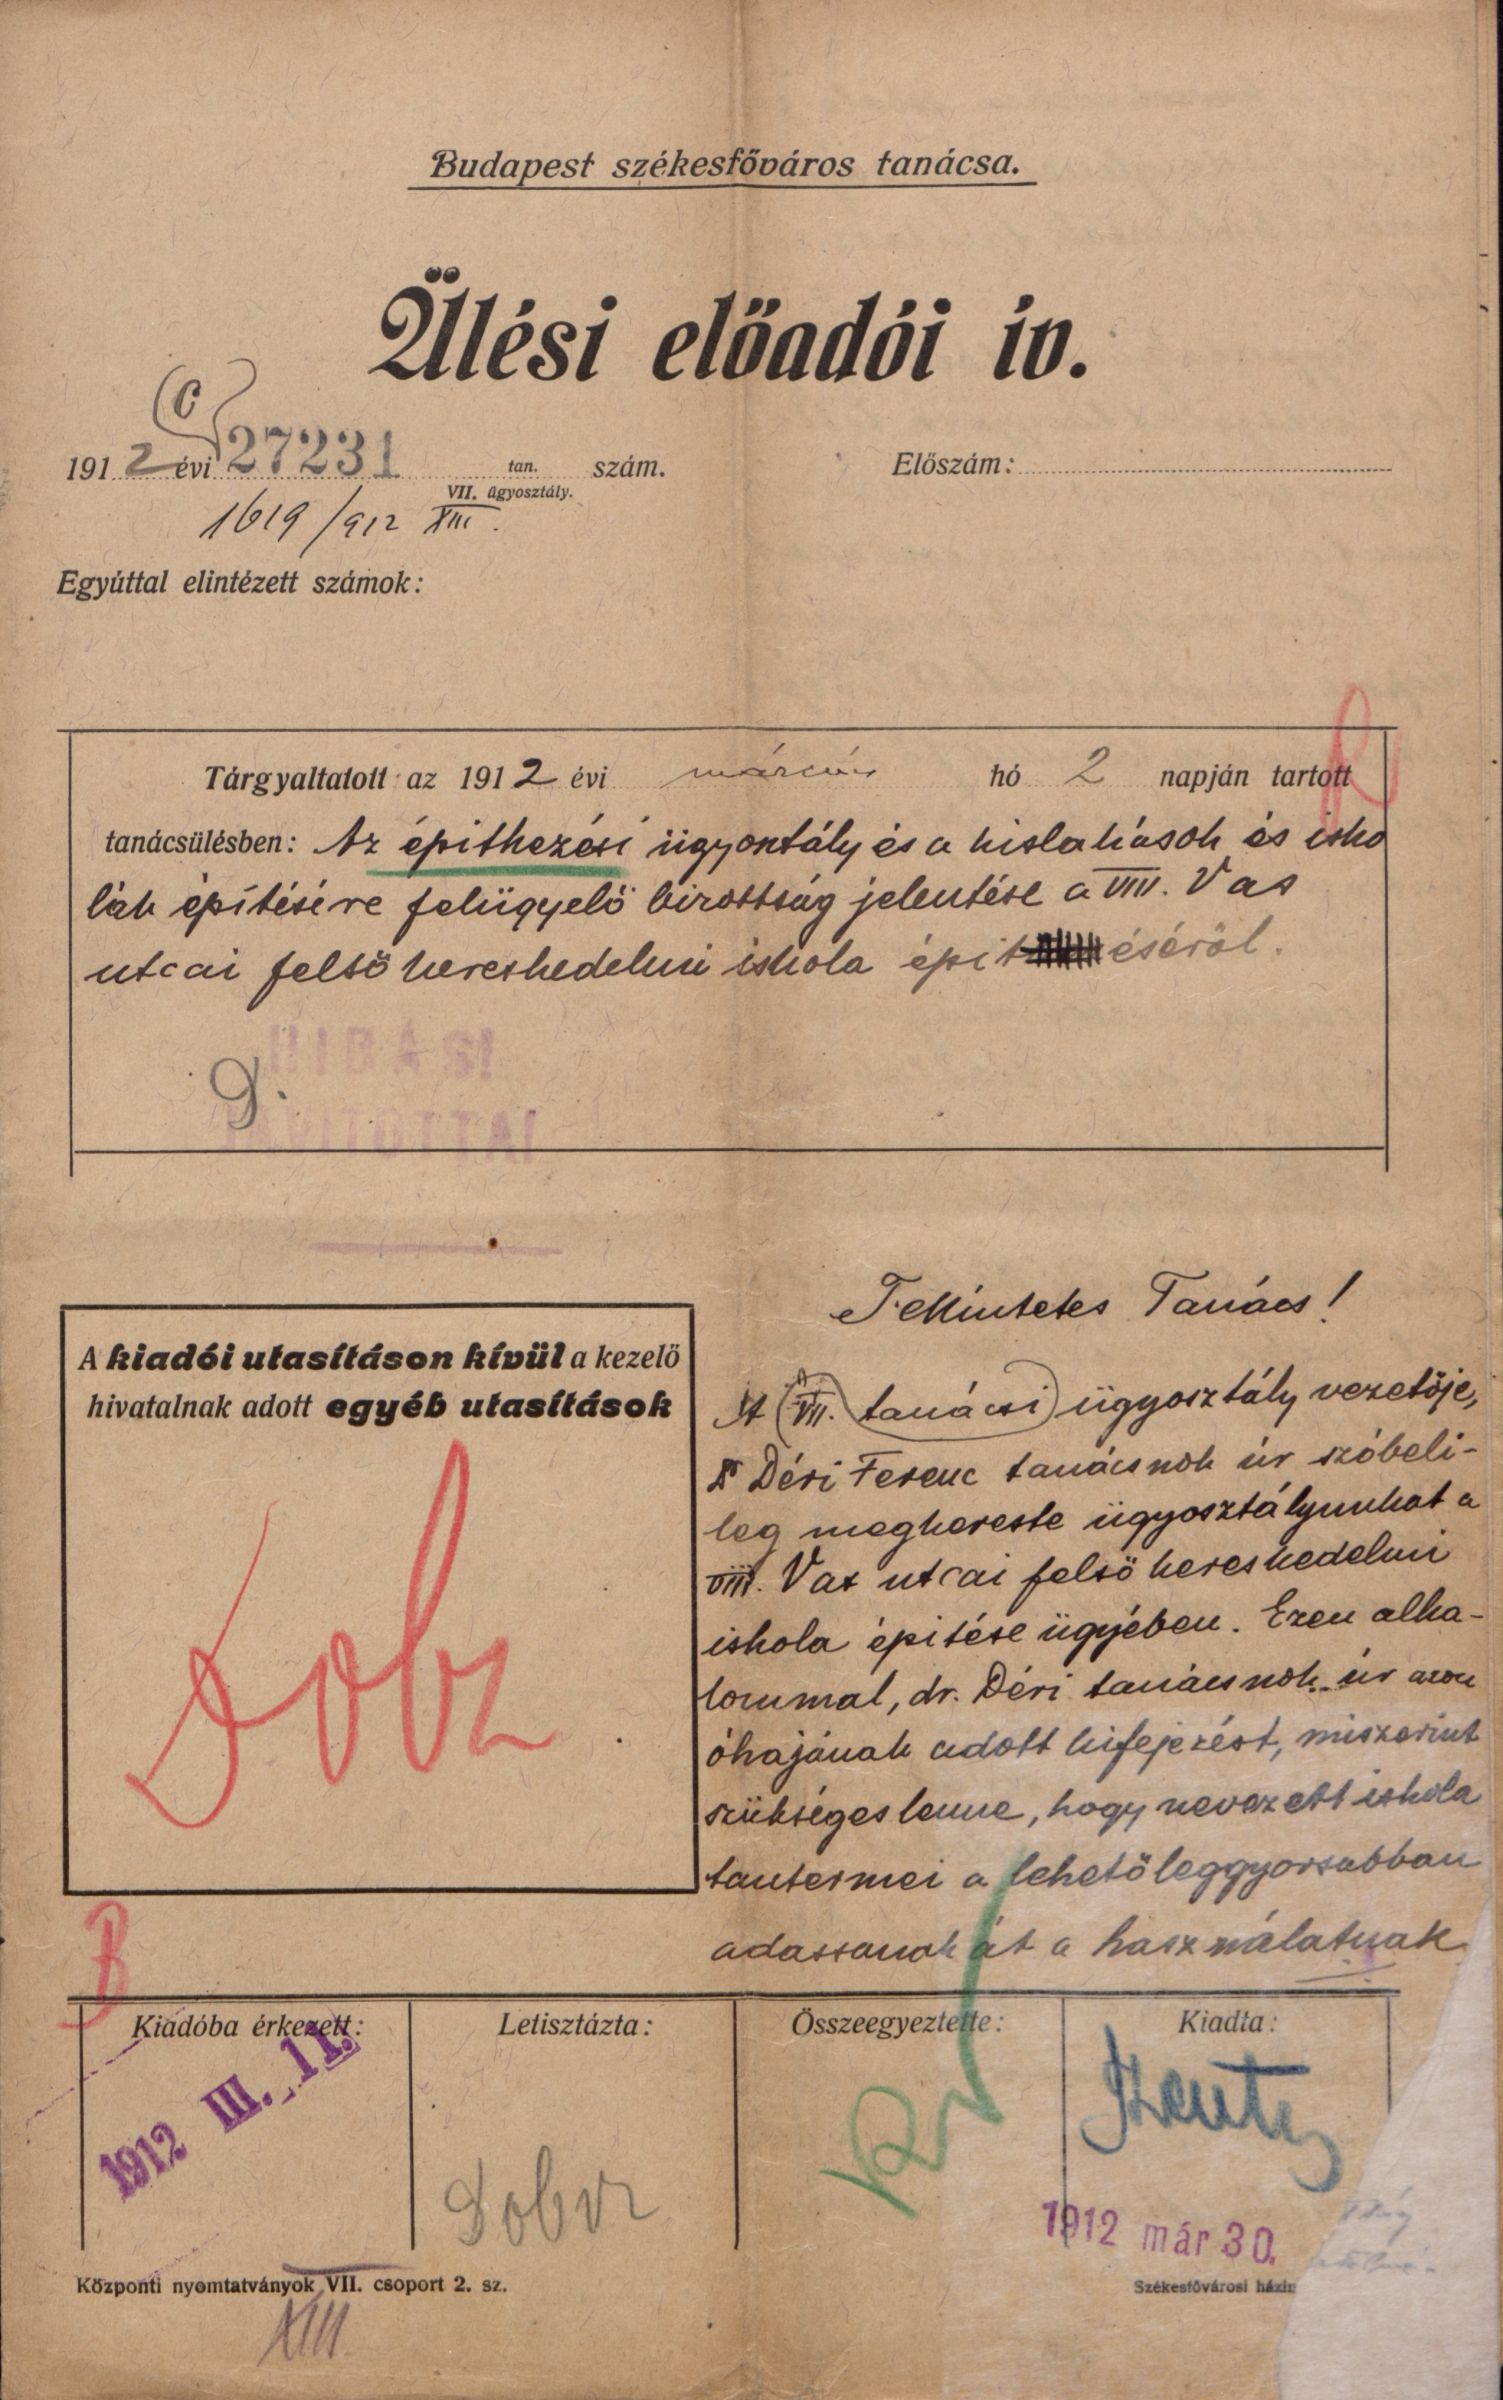 Budapest székesfőváros tanácsa.
Ülési előadói ív.
C
1912 évi 27231 tan. szám.
Előszám:
VII. ügyosztály.
1619/912 XIII.
Együttal elintézett számok:
Tárgyaltatott az 1912 évi március hó 2 napján tartott
tanácsülésben: Az épitkezési ügyosztály és a kislakások és isko
lák épitésére felügyelő bizottság jelentése a VIII. Vas
utcai felső kereskedelmi iskola épitéséről.
D.
Tekintetes Tanács!
A kiadói utasításon kívül a kezelő
hivatalnak adott egyéb utasítások
A VII. tanácsi ügyosztály vezetője,
Dr Déri Ferenc tanácsnok úr szóbeli-
leg megkereste ügyosztályunkat a
VIII. Vas utcai felső kereskedelmi
iskola épitése ügyében. Ezen alka-
lommal, dr. Déri tanácsnok úr azon
óhajának adott kifejezést, miszerint
szükséges lenne, hogy nevezett iskola
tantermei a lehető leggyorsabban
adassanak át a használatnak
B
Kiadóba érkezett:
Letisztázta:
Összeegyeztette:
Kiadta:
1912 III. 11.
1912 már 30.
Központi nyomtatványok VII. csoport 2. sz.
Székesfővárosi házin
XIII